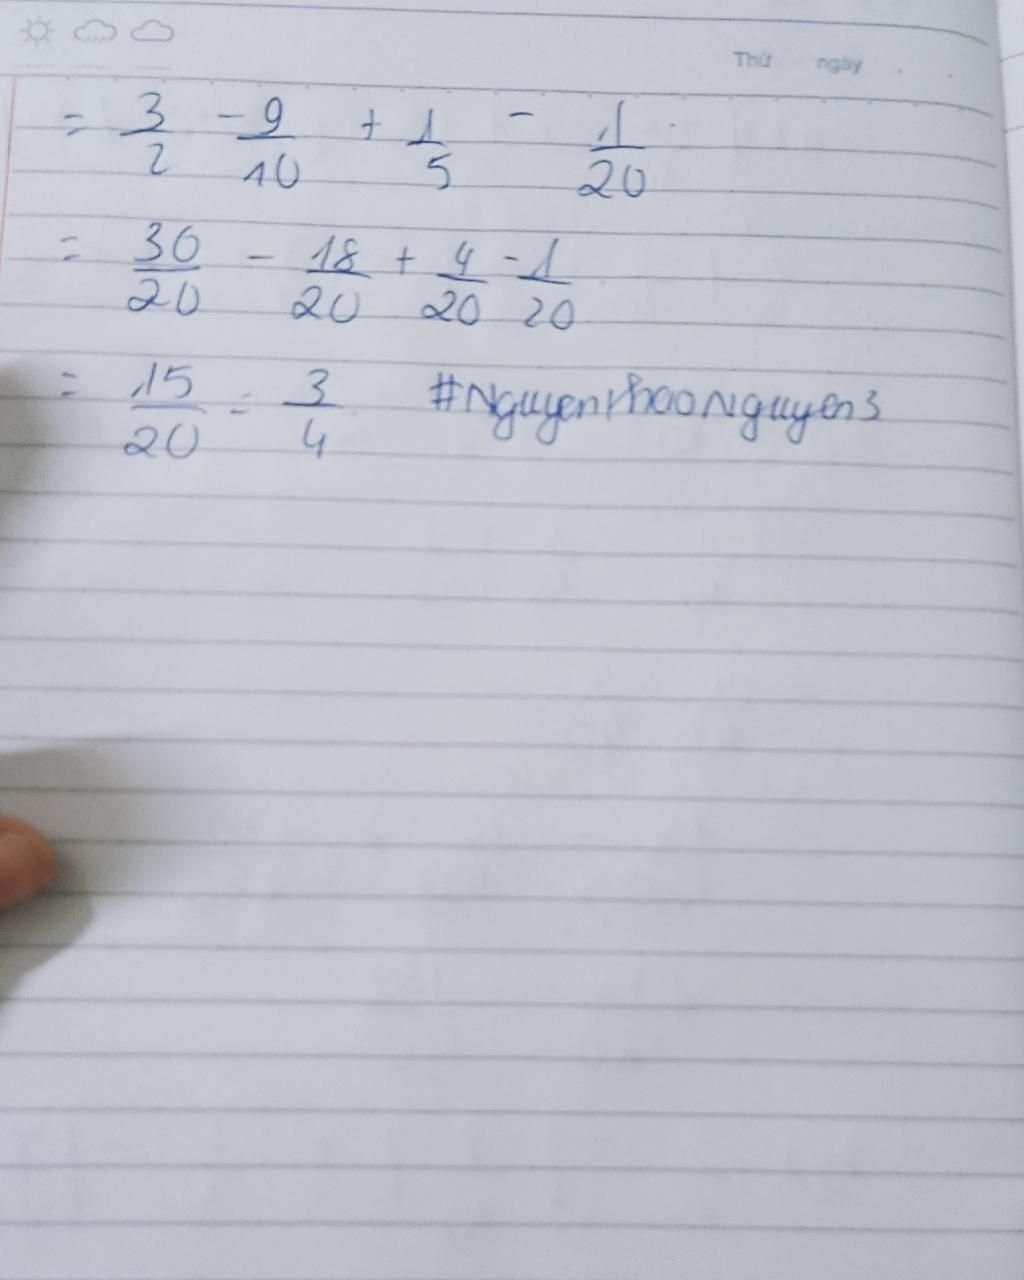 Thứ ngày
= 3/2 - 9/10 + 1/5 - 1/20
= 30/20 - 18/20 + 4/20 - 1/20
= 15/20 = 3/4 #NguyenthaoNguyen3